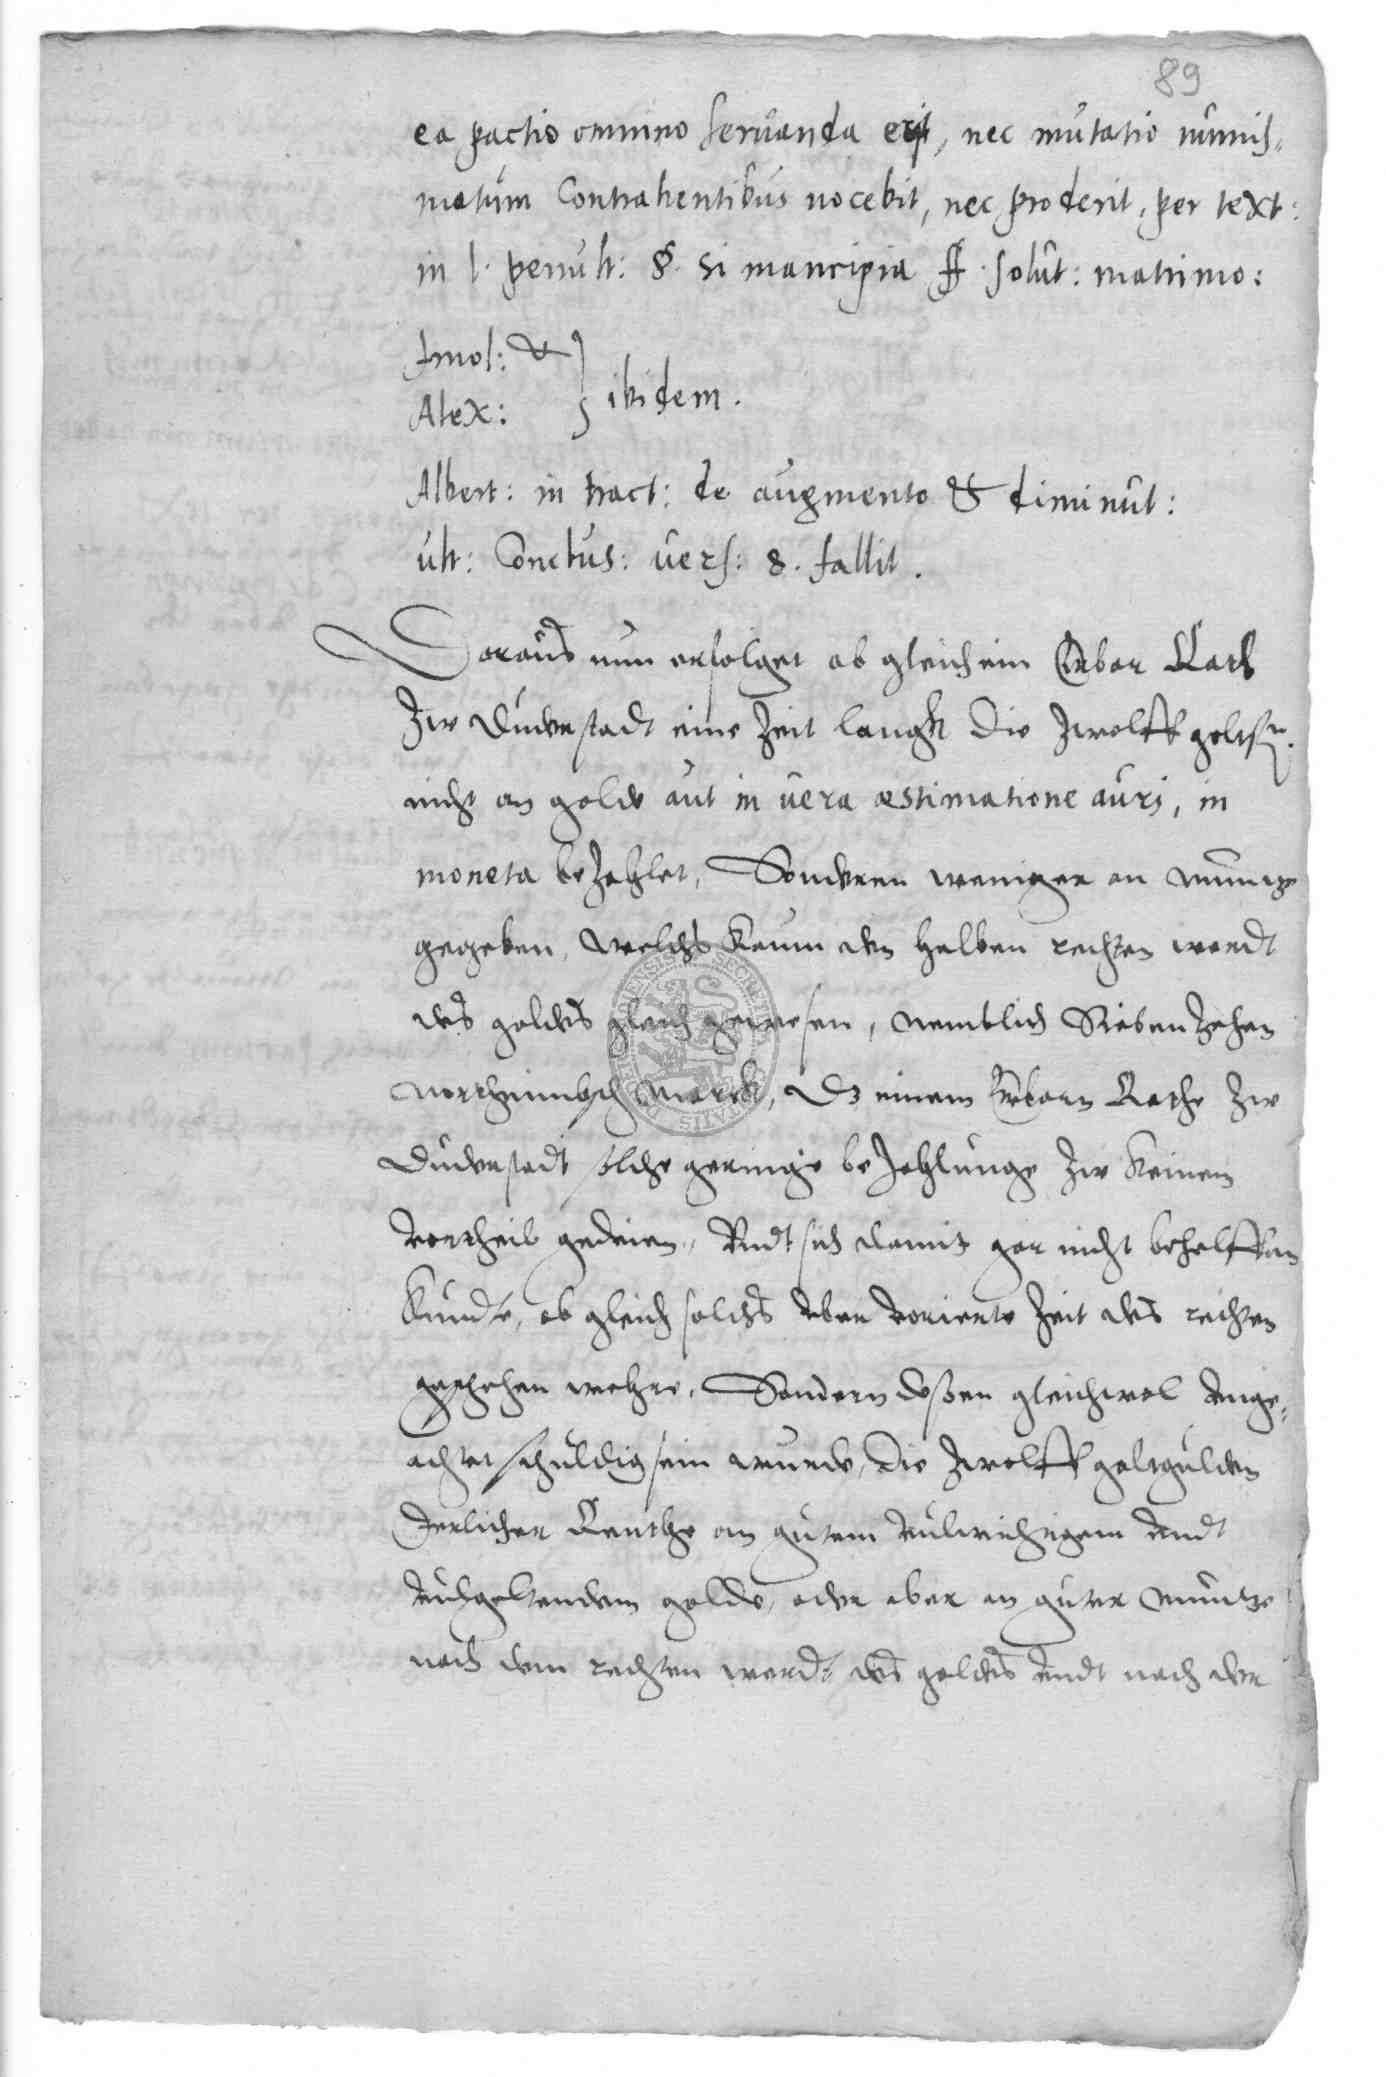 89
ea pactio omnino seruanda erit, nec mutatio numis-
matum Contrahentibus nocebit, nec proderit, per text:
in l. penult: §. si mancipia ff. solut: matrimo:
Imol: &
Alex: } ibidem.
Albert: in tract: de augmento & diminut:
ult: Conclus: vers: 8. fallit.
Daraus nun erfolget ob gleich ein Erbar Rath
Zw Duderstadt eine Zeit langk die Zwolff goltfl.
nicht an golde aut in uera æstimatione auri, in
moneta bezahlet, Sonderen weniger an muntz
gegeben, welchs kaum den halben rechten werdt
des goldes gleich gewesen, nemblich Sieben zehen
Northeimbsch Marck, Das einem Erbarn Rathe Zw
Duderstadt solche geringe bezahlunge Zw keinem
vortheil gedeien, Vndt sich damit gar nicht behelffen
kundte, ob gleich solchs vber vorierte Zeit des rechten
geschehen wehre, Sondern dessen gleichwol vnge-
achtet schuldig sein wurde, die Zwolff goltgulden
Jerlicher Renthe an gutem vulwichtigem vndt
vulgeltendem golde, oder aber an guter Muntze
nach dem rechten werdt des goldes vndt nach der